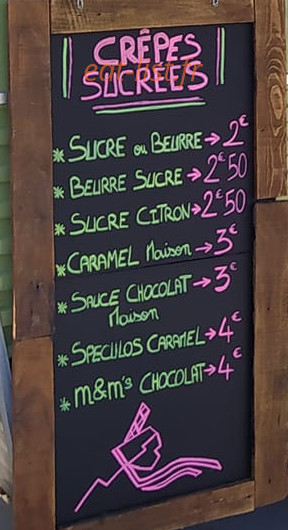 CRÊPES
SUCRÉES
eat-list.fr
* SUCRE ou BEURRE → 2€
* BEURRE SUCRE → 2€50
* SUCRE CITRON → 2€50
* CARAMEL Maison → 3€
* SAUCE CHOCOLAT → 3€
Maison
* SPECULOS CARAMEL → 4€
* m&m's CHOCOLAT → 4€